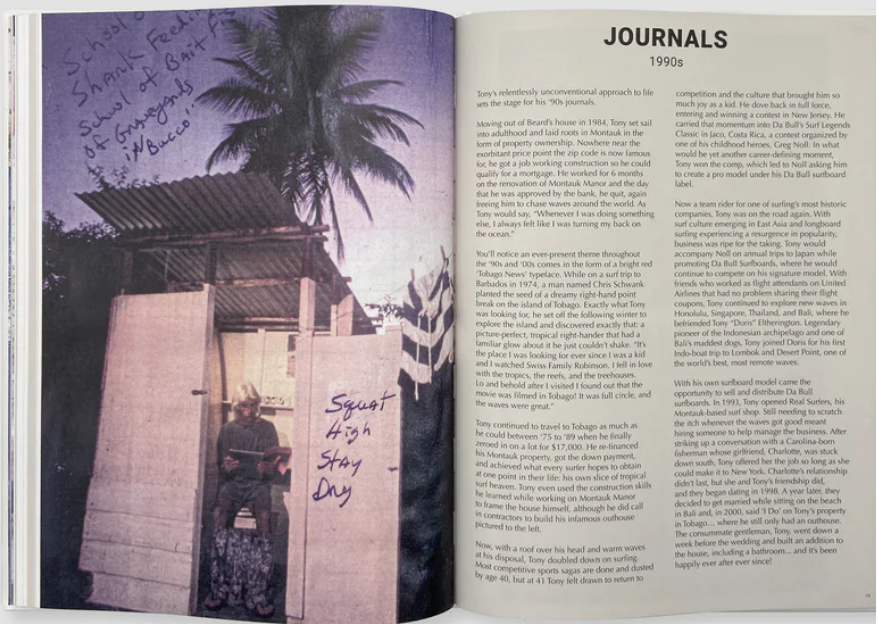 School of
Shark Feeding
School of Bait Fish
of Graveyards
"iN Bucco"
Squat
High
Stay
Dry
JOURNALS
1990s
Tony's relentlessly unconventional approach to life
sets the stage for his '90s journals.
Moving out of Beard's house in 1984, Tony set sail
into adulthood and laid roots in Montauk in the
form of property ownership. Nowhere near the
exorbitant price point the zip code is now famous
for, he got a job working construction so he could
qualify for a mortgage. He worked for 6 months
on the renovation of Montauk Manor and the day
that he was approved by the bank, he quit, again
freeing him to chase waves around the world. As
Tony would say, "Whenever I was doing something
else, I always felt like I was turning my back on
the ocean."
You'll notice an ever-present theme throughout
the '90s and '00s comes in the form of a bright red
'Tobago News' typeface. While on a surf trip to
Barbados in 1974, a man named Chris Schwank
planted the seed of a dreamy right-hand point
break on the island of Tobago. Exactly what Tony
was looking for, he set off the following winter to
explore the island and discovered exactly that: a
picture-perfect, tropical right-hander that had a
familiar glow about it he just couldn't shake. "It's
the place I was looking for ever since I was a kid
and I watched Swiss Family Robinson. I fell in love
with the tropics, the reefs, and the treehouses.
Lo and behold after I visited I found out that the
movie was filmed in Tobago! It was full circle, and
the waves were great."
Tony continued to travel to Tobago as much as
he could between '75 to '89 when he finally
zeroed in on a lot for $17,000. He re-financed
his Montauk property, got the down payment,
and achieved what every surfer hopes to obtain
at one point in their life: his own slice of tropical
surf heaven. Tony even used the construction skills
he learned while working on Montauk Manor
to frame the house himself, although he did call
in contractors to build his infamous outhouse
pictured to the left.
Now, with a roof over his head and warm waves
at his disposal, Tony doubled down on surfing.
Most competitive sports sagas are done and dusted
by age 40, but at 41 Tony felt drawn to return to
competition and the culture that brought him so
much joy as a kid. He dove back in full force,
entering and winning a contest in New Jersey. He
carried that momentum into Da Bull's Surf Legends
Classic in Jaco, Costa Rica, a contest organized by
one of his childhood heroes, Greg Noll. In what
would be yet another career-defining moment,
Tony won the comp, which led to Noll asking him
to create a pro model under his Da Bull surfboard
label.
Now a team rider for one of surfing's most historic
companies, Tony was on the road again. With
surf culture emerging in East Asia and longboard
surfing experiencing a resurgence in popularity,
business was ripe for the taking. Tony would
accompany Noll on annual trips to Japan while
promoting Da Bull Surfboards, where he would
continue to compete on his signature model. With
friends who worked as flight attendants on United
Airlines that had no problem sharing their flight
coupons, Tony continued to explore new waves in
Honolulu, Singapore, Thailand, and Bali, where he
befriended Tony "Doris" Eltherington. Legendary
pioneer of the Indonesian archipelago and one of
Bali's maddest dogs, Tony joined Doris for his first
Indo-boat trip to Lombok and Desert Point, one of
the world's best, most remote waves.
With his own surfboard model came the
opportunity to sell and distribute Da Bull
surfboards. In 1993, Tony opened Real Surfers, his
Montauk-based surf shop. Still needing to scratch
the itch whenever the waves got good meant
hiring someone to help manage the business. After
striking up a conversation with a Carolina-born
fisherman whose girlfriend, Charlotte, was stuck
down south, Tony offered her the job so long as she
could make it to New York. Charlotte's relationship
didn't last, but she and Tony's friendship did,
and they began dating in 1998. A year later, they
decided to get married while sitting on the beach
in Bali and, in 2000, said 'I Do' on Tony's property
in Tobago... where he still only had an outhouse.
The consummate gentleman, Tony, went down a
week before the wedding and built an addition to
the house, including a bathroom... and it's been
happily ever after ever since!